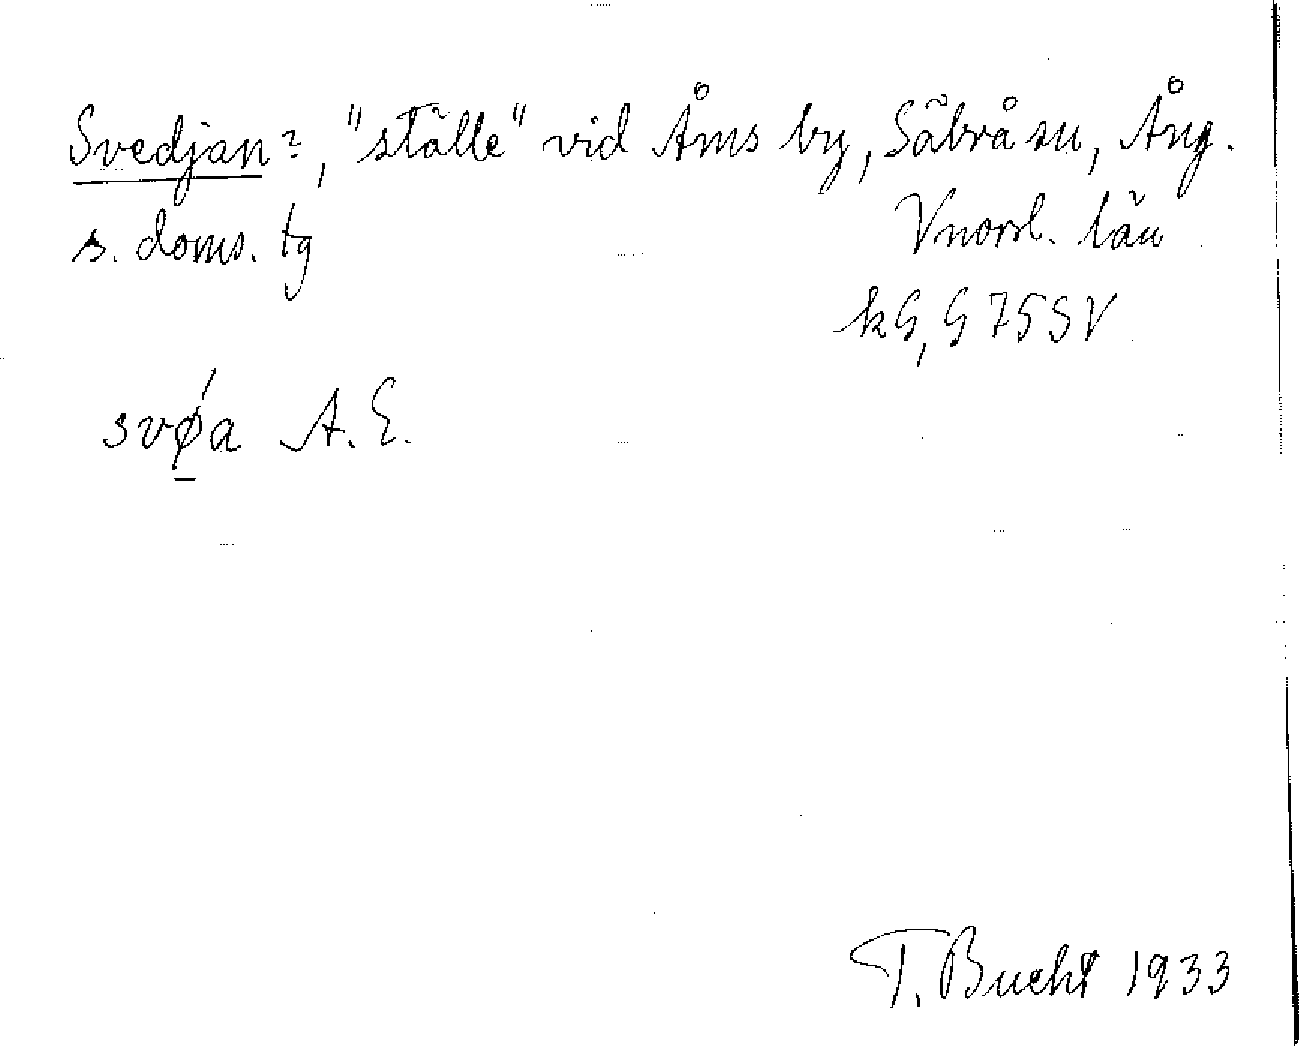 Svedjan?, "ställe" vid Åms by, Säbrå sn, Ång.
s. doms. tg
Vnorrl. län
kG, G 75 SV
svǿa A. E.
T. Bucht 1933